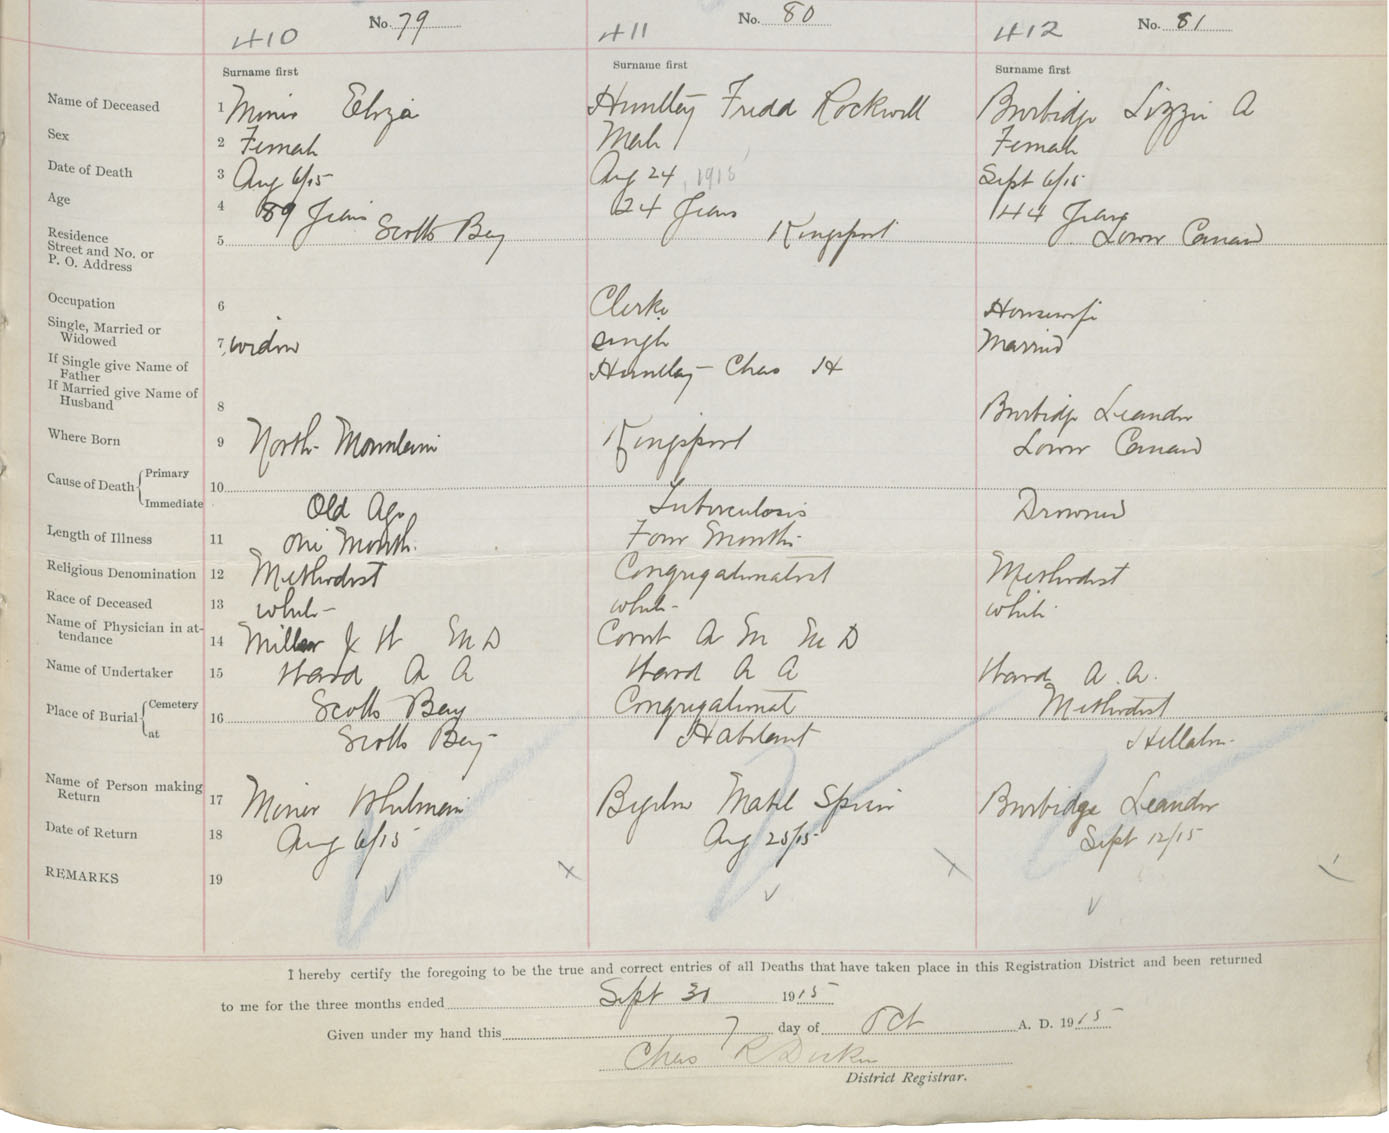 410 No. 79 411 No. 80 412 No. 81
Surname first Surname first Surname first
Name of Deceased 1 Eliza Huntley Fredd Rockwell Burbidge Lizzie A
Sex 2 Female Male Female
Date of Death 3 Aug 6/15 Aug 24, 1915 Sept 6/15
Age 4 89 Years 24 Years 44 Years
Residence
Street and No. or 5 Scotts Bay Kingsport Lower Canard
P. O. Address
Occupation 6 Clerk Housewife
Single, Married or
Widowed 7 widow single Married
If Single give Name of
Father Huntley Chas H
If Married give Name of
Husband 8 Burbidge Leander
Where Born 9 North Mountain Kingsport Lower Canard
Cause of Death Primary 10
Immediate Old Age Tuberculosis Drowned
Length of Illness 11 one Month. Four Months
Religious Denomination 12 Methodist Congregationalist Methodist
Race of Deceased 13 white white white
Name of Physician in at-
tendance 14 Miller M D A M M D
Name of Undertaker 15 Ward A A Ward A A Ward A. A.
Place of Burial Cemetery 16 Scotts Bay Congregational Methodist
at Scotts Bay Habitant
Name of Person making
Return 17 Mabel Burbidge Leander
Date of Return 18 Aug 6/15 Aug 25/15 Sept 12/15
REMARKS 19
I hereby certify the foregoing to be the true and correct entries of all Deaths that have taken place in this Registration District and been returned
to me for the three months ended Sept 30 1915
Given under my hand this 7 day of Oct A. D. 1915
Chas R
District Registrar.